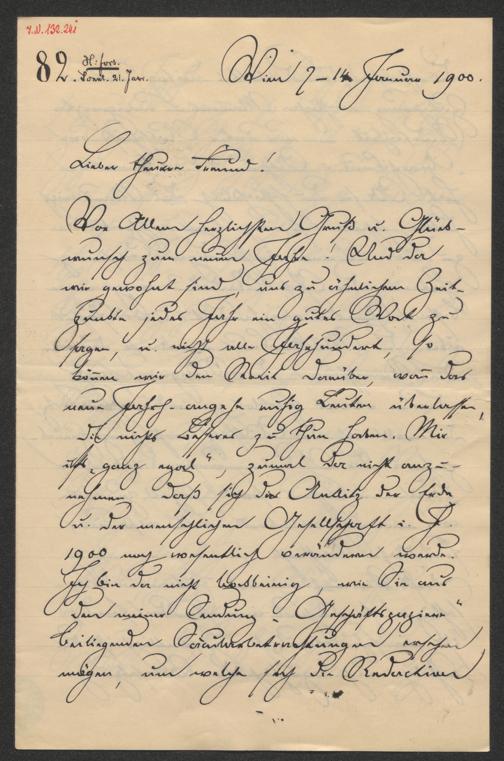 I.N. 132.241
82. H: fors.
Beant. 21. Jan.
Wien 7–14 Januar 1900.
Lieber theurer Freund!
Vor Allem herzlichsten Gruß u. Glück-
wunsch zum neuen Jahre! Und da
wir gewohnt sind, uns zu ähnlichem Zeit-
punkte jedes Jahr ein gutes Wort zu
sagen, u. nicht alle Jahrhundert, so
können wir den Streit darüber, wañ das
neue Jahrh. angehe ruhig Leuten überlassen,
die nichts Besseres zu thun haben. Mir
ist „ganz egal“, zumal da nicht anzu-
nehmen daß sich das Antlitz der Erde
u. der menschlichen Gesellschaft i. J.
1900 noch wesentlich verändern werde.
Ich bin da nicht, wie Sie aus
den meiner Sendung „Geschäftspapiere“
beiliegenden ersehen
mögen, um welche sich die Redactionen